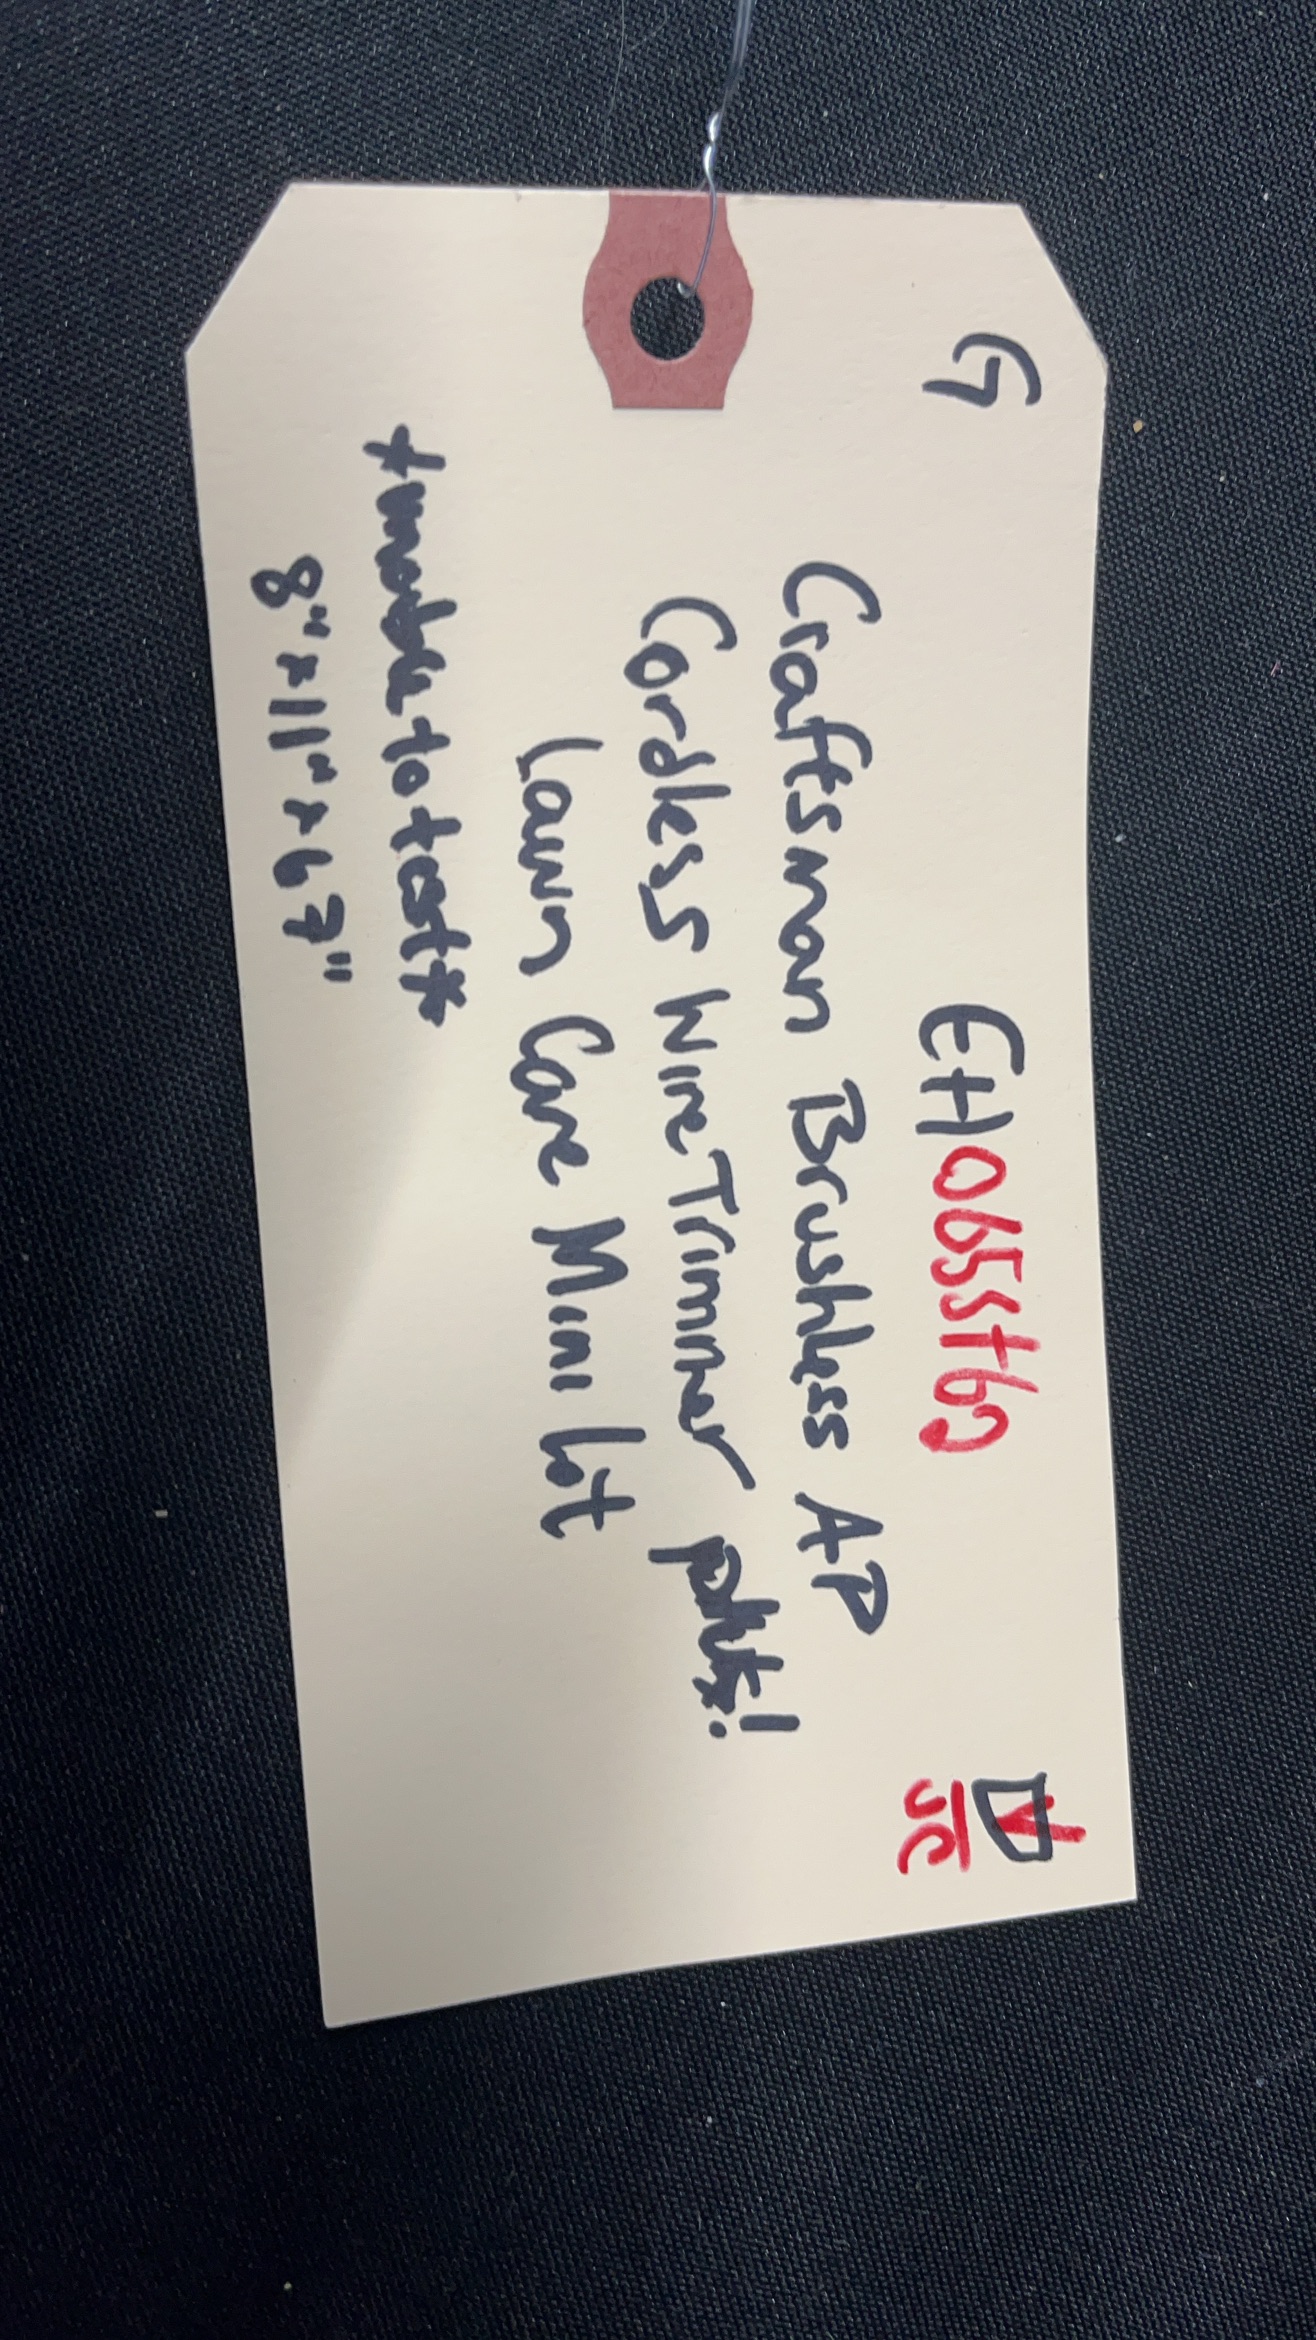 G EH0655t69 A
JC
Craftsman Brushless AP
Cordless Wire Trimmer
Lawn Care Mini lot
*unable to test*
8"x11"x67"